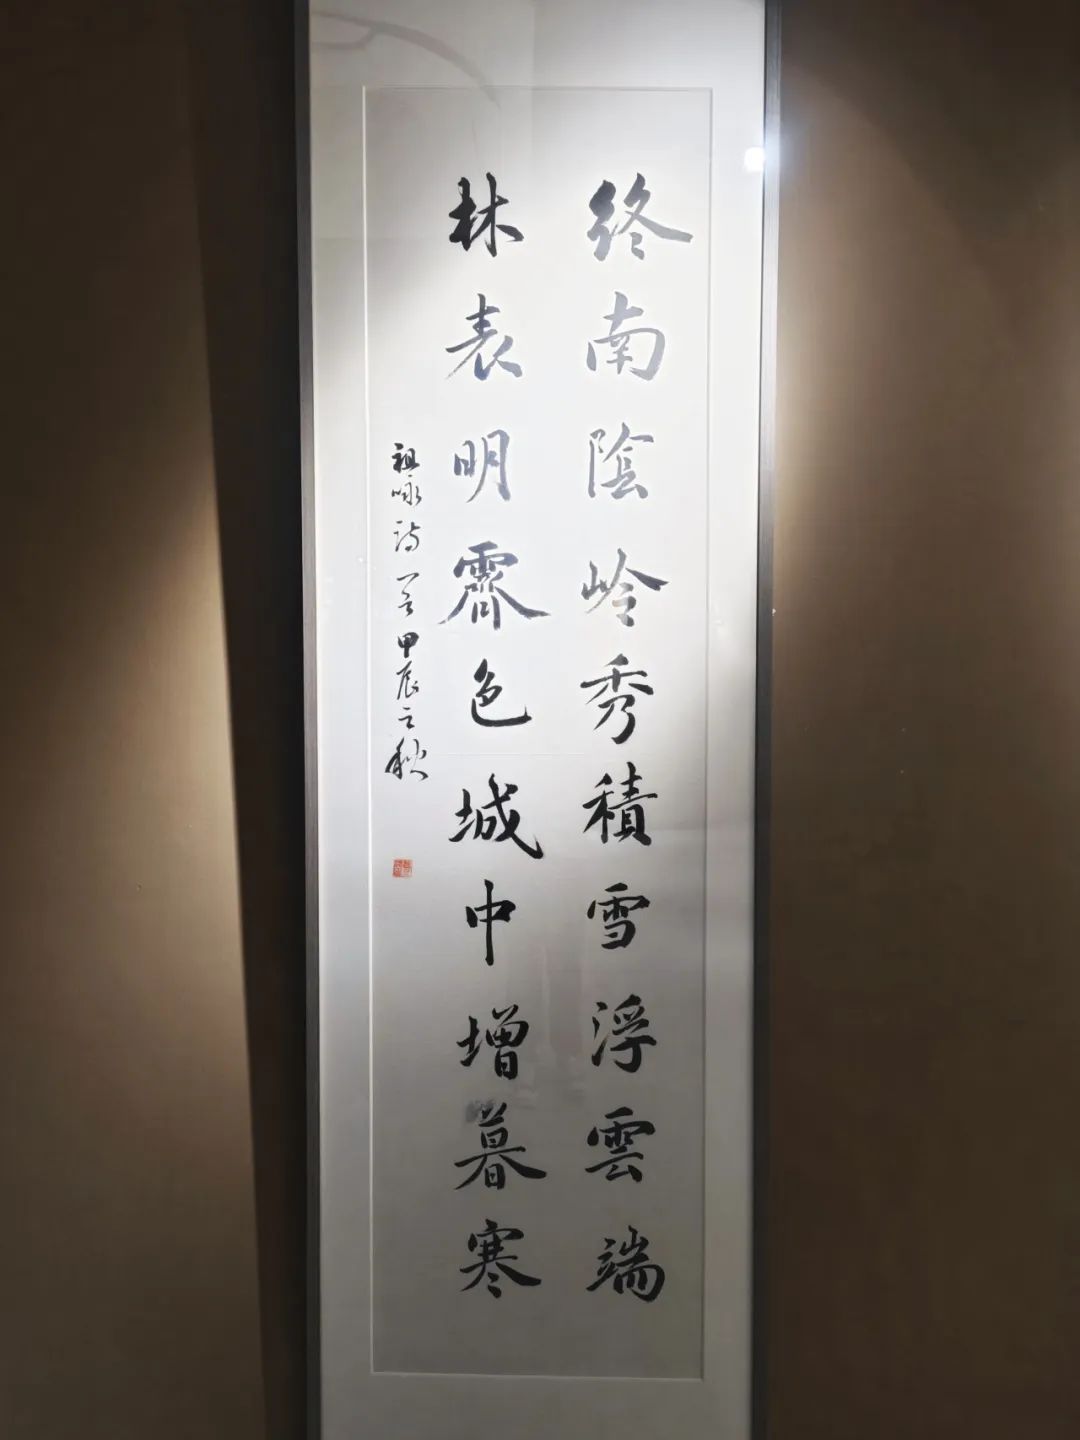 終南陰岭秀積雪浮雲端
林表明霽色城中增暮寒
祖咏诗一首甲辰之秋